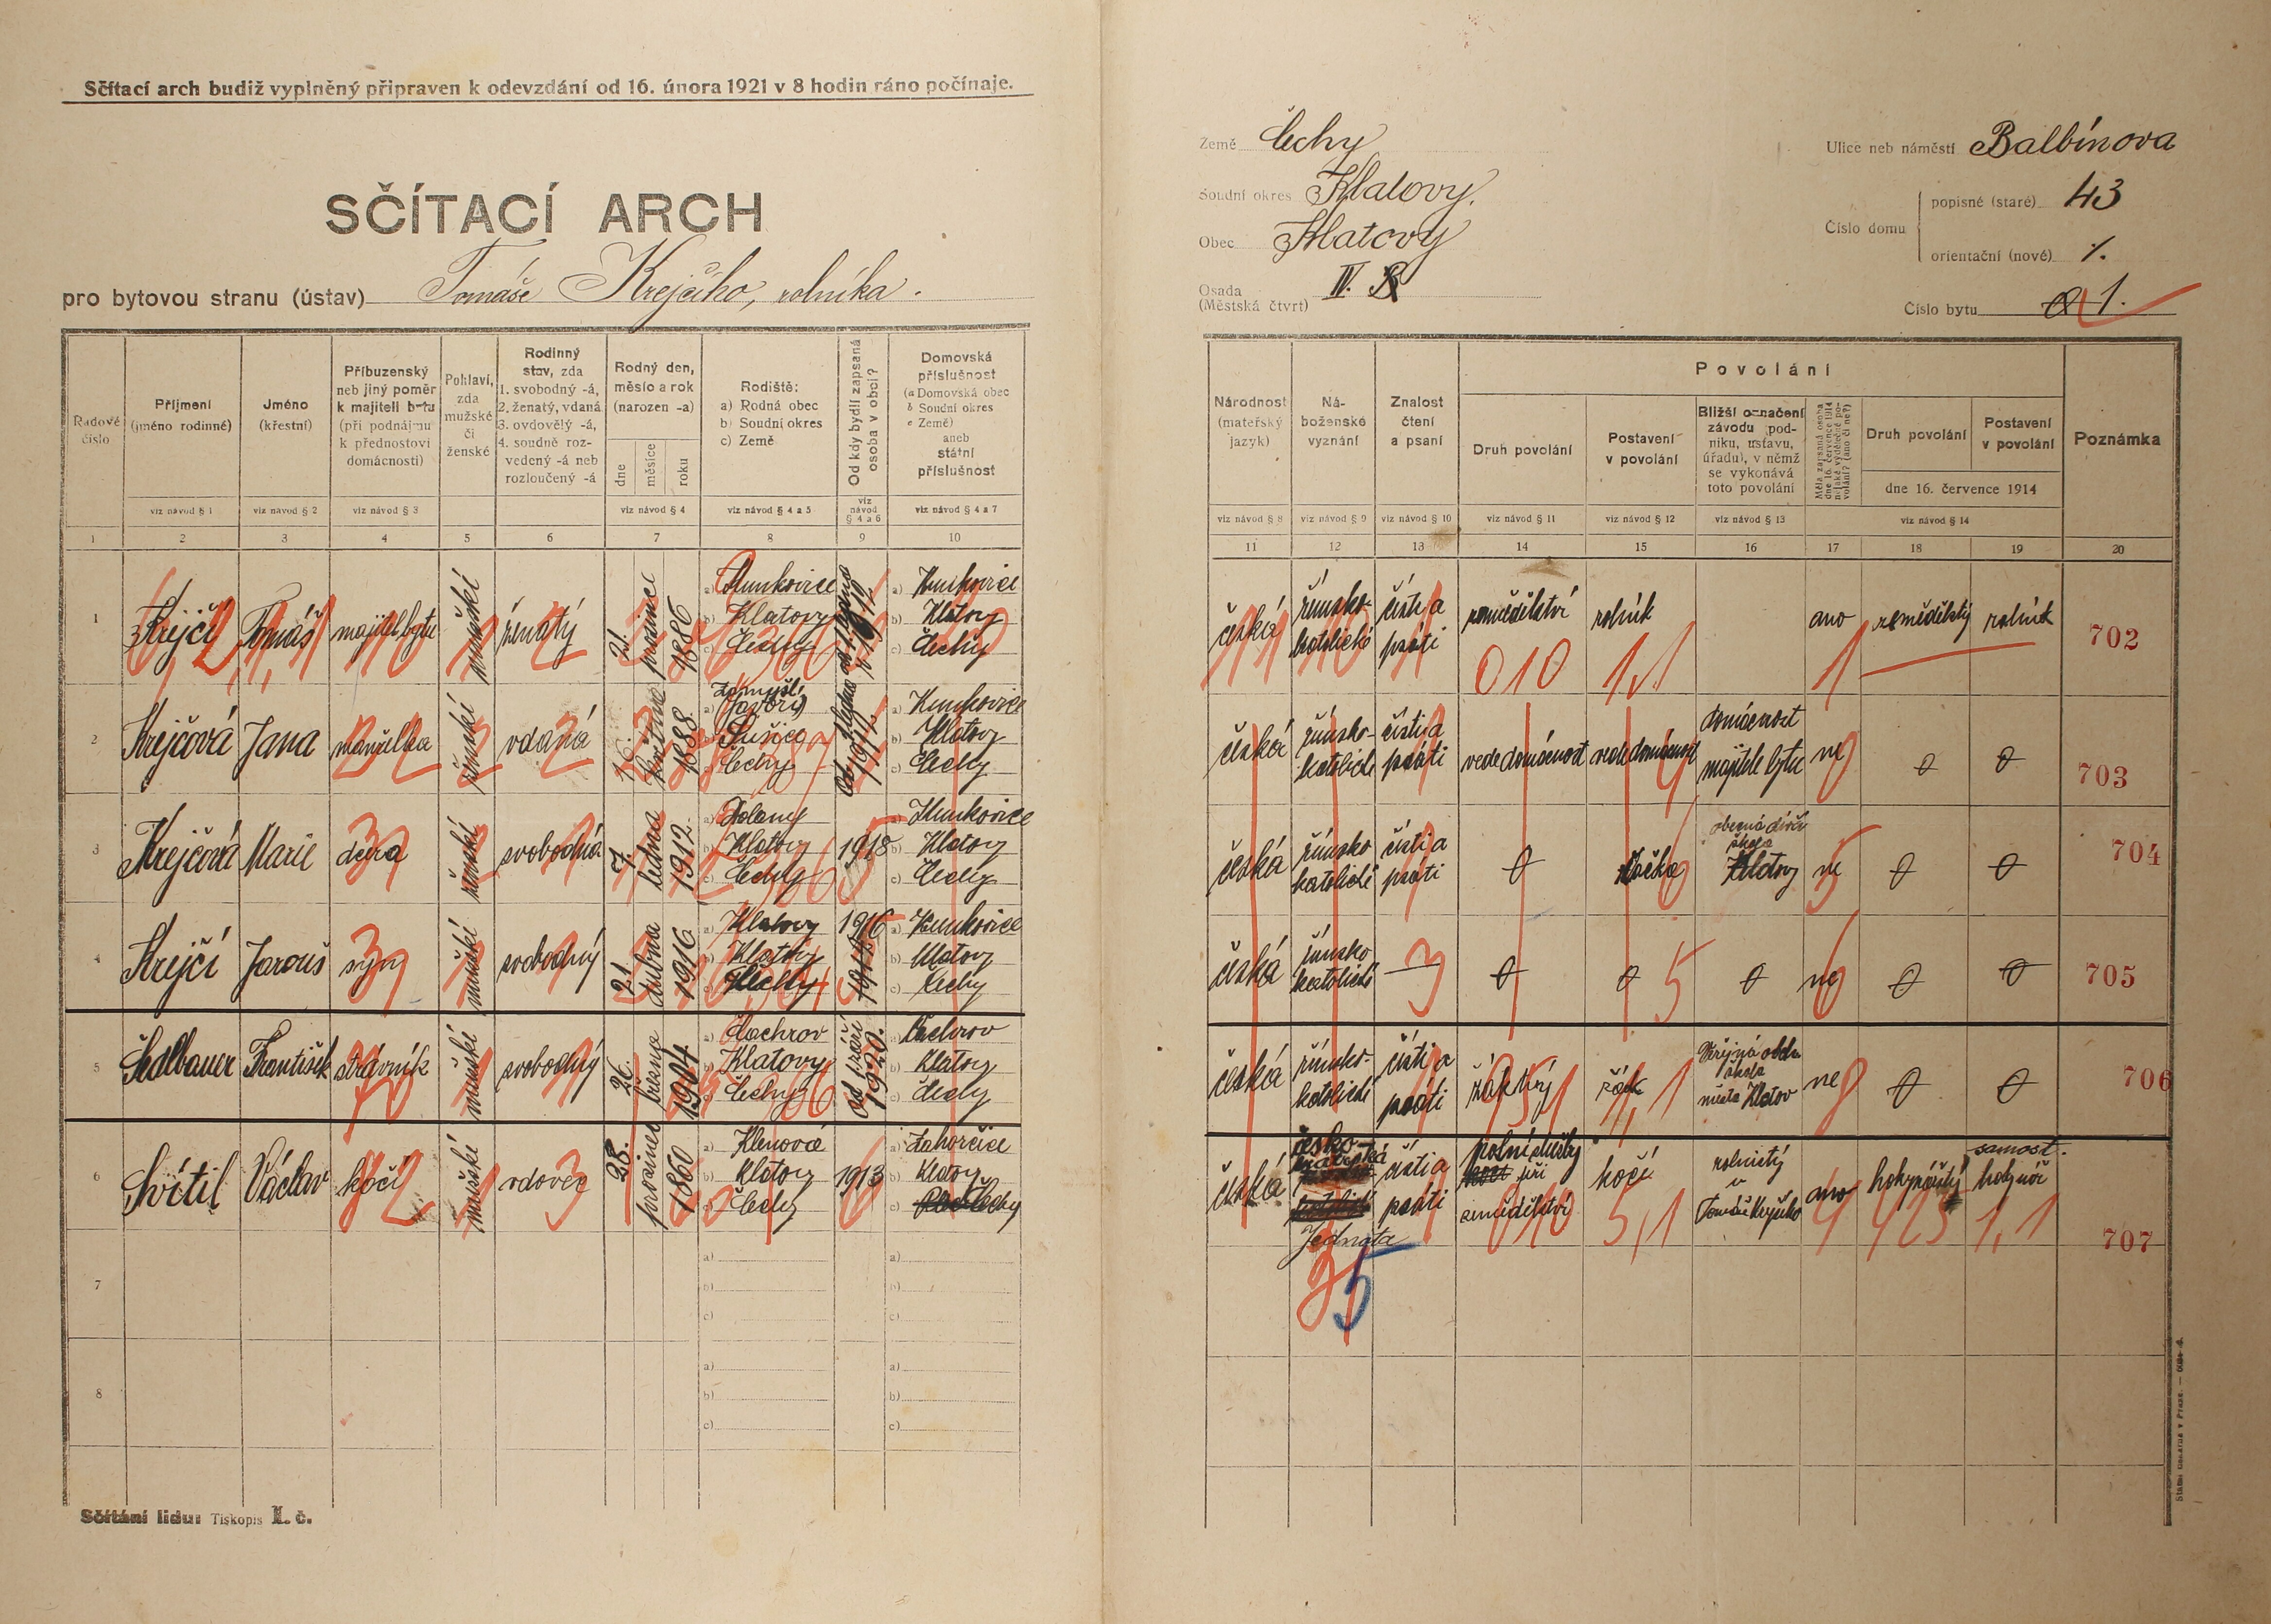 Sčítací arch budiž vyplněný připraven k odevzdání od 16. února 1921 v 8 hodin ráno počínaje.
SČÍTACÍ ARCH
pro bytovou stranu (ústav) Tomáše Krejčího, rolníka.
Země Čechy
Soudní okres Klatovy.
Obec Klatovy
Osada
(Městská čtvrt) IV.
Ulice neb náměstí Balbínova
Číslo domu
popisné (staré) 43
orientační (nové)
Číslo bytu 1.
Řadové číslo
Příjmení (jméno rodinné)
Jméno (křestní)
Příbuzenský neb jiný poměr k majiteli bytu (při podnájmu k přednostovi domácnosti)
Pohlaví, zda mužské či ženské
Rodinný stav, zda 1. svobodný -á, 2. ženatý, vdaná 3. ovdovělý -á, 4. soudně rozvedený -á neb rozloučený -á
Rodný den, měsíc a rok (narozen -a)
dne
měsíce
roku
Rodiště: a) Rodná obec b) Soudní okres c) Země
Od kdy bydlí zapsaná osoba v obci?
Domovská příslušnost (a Domovská obec b Soudní okres c Země) aneb státní příslušnost
viz návod § 1
viz návod § 2
viz návod § 3
viz návod § 4
viz návod § 4 a 5
viz návod § 4 a 6
viz návod § 4 a 7
1 2 3 4 5 6 7 8 9 10
Národnost (mateřský jazyk)
Náboženské vyznání
Znalost čtení a psaní
Povolání
Druh povolání
Postavení v povolání
Bližší označení závodu podniku, ústavu, úřadu), v němž se vykonává toto povolání
Měla zapsaná osoba dne 16. července 1914 nějaké výdělečné povolání? (ano či ne?)
Druh povolání
Postavení v povolání
dne 16. července 1914
Poznámka
viz návod § 8
viz návod § 9
viz návod § 10
viz návod § 11
viz návod § 12
viz návod § 13
viz návod § 14
11 12 13 14 15 16 17 18 19 20
1 Krejčí Tomáš majitel bytu mužské ženatý 21. prosince 1886
a) Kunkovice
b) Klatovy
c) Čechy
a) Kunkovice
b) Klatovy
c) Čechy
česká římsko-katolické čísti a psáti zemědělství rolník ano zemědělský rolník 702
010 1,1 1
2 Krejčová Jana manželka ženské vdaná 16. května 1888
a) Javoří
b) Sušice
c) Čechy
a) Kunkovice
b) Klatovy
c) Čechy
česká římsko-katolické čísti a psáti vede domácnost vede domácnost domácnost majitele bytu ne 0 0 703
3 Krejčová Marie dcera ženské svobodná 7. ledna 1912
a) Dolany
b) Klatovy
c) Čechy
1918
a) Kunkovice
b) Klatovy
c) Čechy
česká římsko katolické čísti a psáti 0 žačka obecná dívčí škola Klatovy ne 0 0 704
4 Krejčí Jarouš syn mužské svobodný 21 dubna 1916
a) Klatovy
b) Klatovy
c) Čechy
1916
a) Kunkovice
b) Klatovy
c) Čechy
česká římsko katolické — 0 0 0 ne 0 0 705
5 Sedlbauer František strávník mužské svobodný 26. března 1904
a) Čachrov
b) Klatovy
c) Čechy
od 1 září 1920.
a) Čachrov
b) Klatovy
c) Čechy
česká římsko-katolické čísti a psáti žák ne 0 0 706
města Klatov
6 Svítil Václav kočí mužské vdovec 28. prosince 1860
a) Klenová
b) Klatovy
c) Čechy
1913
a) Zahorčice
b) Klatovy
c) Čechy
česká česko-bratrská Jednota čísti a psáti zemědělství kočí rolnický u Tomáše Krejčího ano hokynářský samost. hokynář 707
35
7
a)
b)
c)
a)
b)
c)
8
a)
b)
c)
a)
b)
c)
Sčítání lidu: Tiskopis I. č.